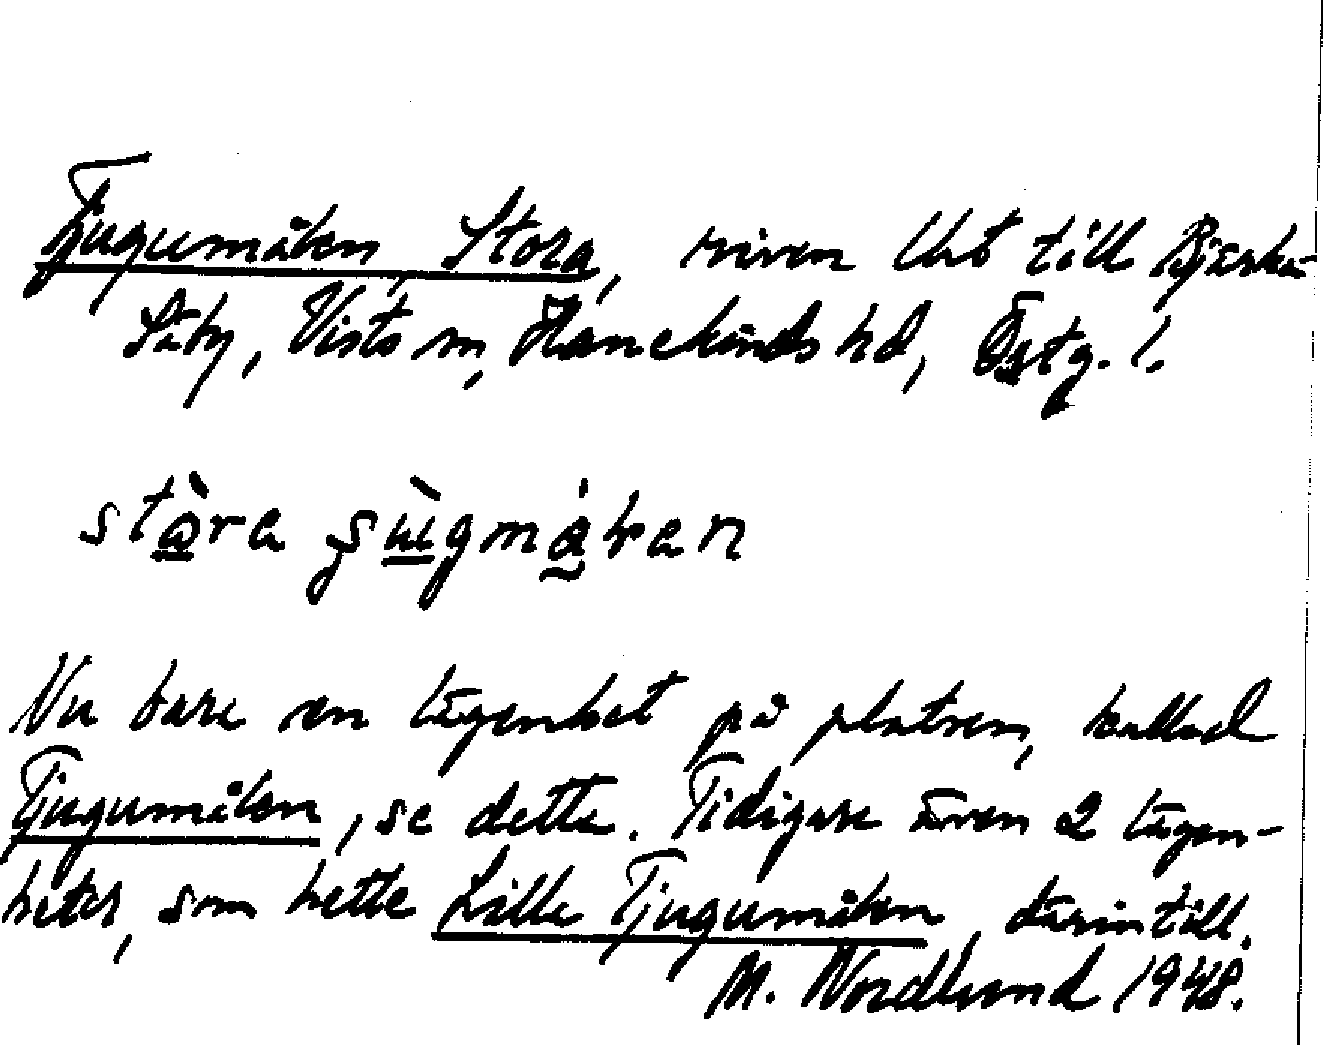 Tjugumåken, Stora, riven lht till Bjärka
Säby, Vists sn, Hanekinds hd, Östg. l.
Nu bare en lägenhet på platsen, kallad
Tjugumåken, se detta. Tidigare även 2 lägen-
heter, som hette Lilla Tjugumåken, därintill.
M. Nordlund 1948.